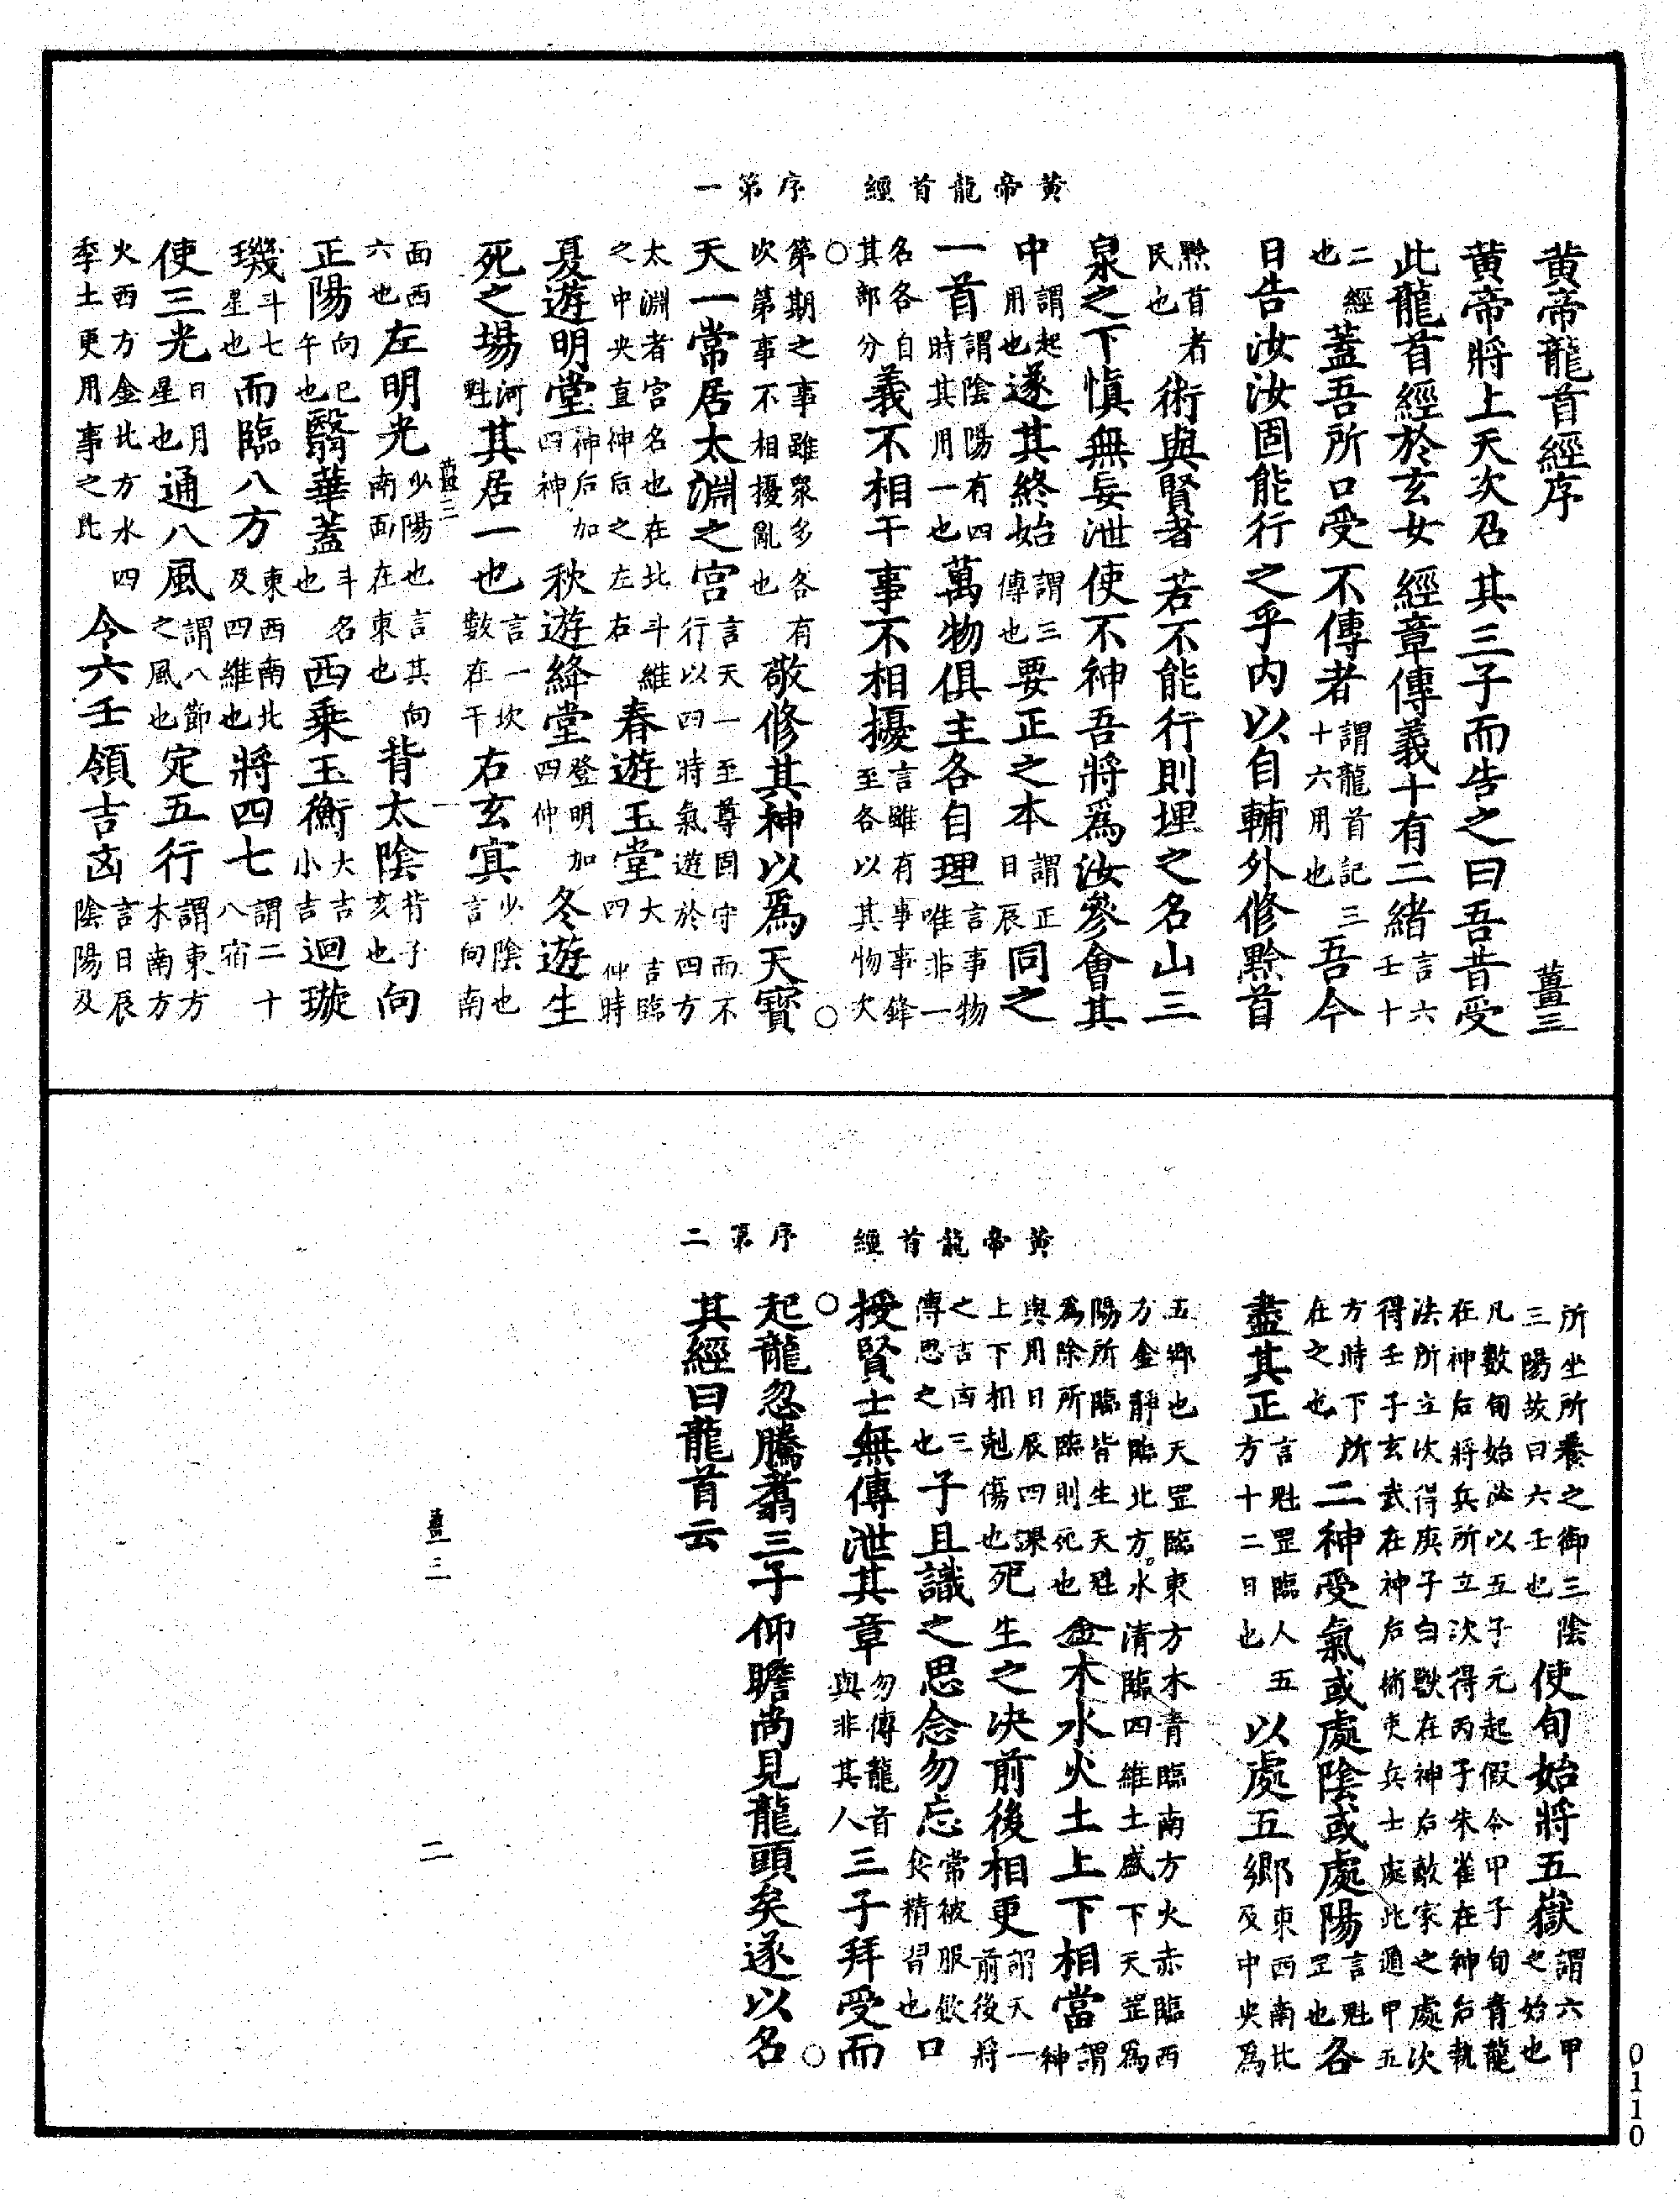 黃帝龍首經　序第一
黃帝龍首經序　薑三
黃帝將上天次召其三子而告之曰吾昔受
此龍首經於玄女經章傳義十有二緒言六壬十
二經也蓋吾所口受不傳者謂龍首記三十六用也吾今
日告汝汝固能行之乎內以自輔外修黔首
黔首者民也術與賢者若不能行則埋之名山三
泉之下慎無妄泄使不神吾將爲汝參會其
中謂起用也遂其終始謂三傳也要正之本謂正日辰同之
一首謂陰陽有四時其用一也萬物俱主各自理言事物唯非一
名各自其部分義不相干事不相擾言雖有事事鋒至各以其物次
第期之事雖衆多各有次第事不相擾亂也敬修其神以爲天寳
天一常居太淵之宮言天一至尊固守而不行以四時氣遊於四方
太淵者宮名也在北斗維之中央直神后之左右春遊玉堂大吉臨四仲時
夏遊明堂神后加四神秋遊絳堂登明加四仲冬遊生
死之場河魁其居一也言一坎數在干右玄宾少陰也言向南
面西六也左明光少陽也言其向南面在東也背太陰背子亥也向
正陽向巳午也翳華蓋斗名也西乘玉衡大吉小吉迴璇
璣斗七星也而臨八方東西南北及四維也將四七謂二十八宿
使三光日月星也通八風謂八節之風也定五行謂東方木南方
火西方金北方水四季土更用事之此令六壬領吉凶言日辰陰陽及
薑三　一
黃帝龍首經　序第二
所坐所養之御三陰三陽故曰六壬也使旬始將五嶽謂六甲之始也
凡數旬始必以五子元起假令甲子旬青龍在神后將兵所立次得丙子朱雀在神后執
法所立次得庚子白獸在神后敵家之處次得壬子玄武在神后捕吏兵士處此遁甲五
方時下所在之也二神受氣或處陰或處陽言魁罡也各
盡其正言魁罡臨人五方十二日也以處五鄉東西南北及中央爲
五鄉也天罡臨東方木青臨南方火赤臨西方金靜臨北方水清臨四維土盛下天罡爲
陽所臨皆生天魁爲除所臨則死也金木水火土上下相當謂神
與用日辰四課上下相剋傷也死生之決前後相更謂天一前後將
之吉凶三傳思之也子且識之思念勿忘常被服飲食精習也口
授賢士無傳泄其章勿傳龍首與非其人三子拜受而
起龍忽騰翥三子仰瞻尚見龍頭矣遂以名
其經曰龍首云
薑三　二
0110